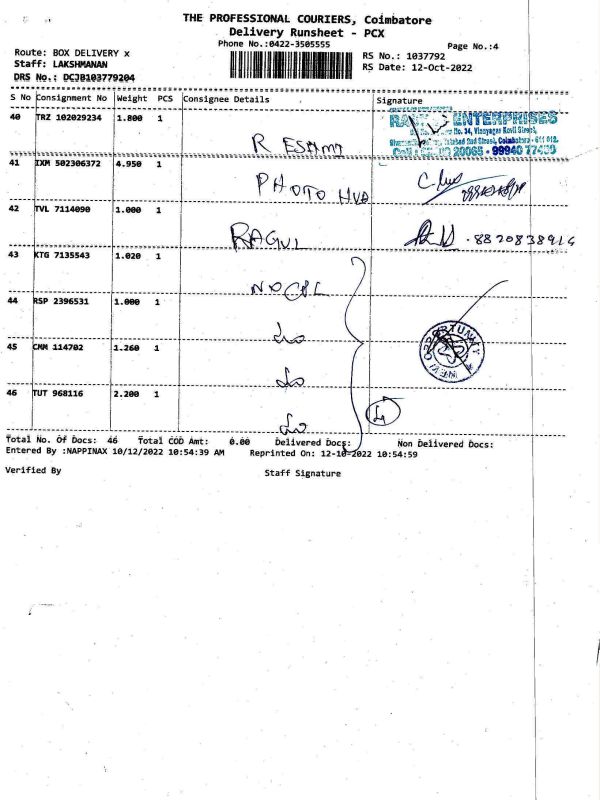 THE PROFESSIONAL COURIERS, Coimbatore
Delivery Runsheet - PCX
Phone No.:0422-3505555
Page No.:4
Route: BOX DELIVERY x
RS No.: 1037792
Staff: LAKSHMANAN
RS Date: 12-Oct-2022
DRS No.: DCJB103779204
S No Consignment No Weight PCS Consignee Details Signature
40 TRZ 102029234 1.800 1
ENTERPRISES
41 IXM 502306372 4.950 1 PHOTO HUB
42 TVL 7114090 1.000 1 RAGUL 8820838914
43 KTG 7135543 1.020 1
44 RSP 2396531 1.000 1
45 CMM 114702 1.260 1
OPPORTUNITY
NEW
46 TUT 968116 2.200 1
Total No. Of Docs: 46 Total COD Amt: 0.00 Delivered Docs: Non Delivered Docs:
Entered By :NAPPINAX 10/12/2022 10:54:39 AM Reprinted On: 12-10-2022 10:54:59
Verified By Staff Signature